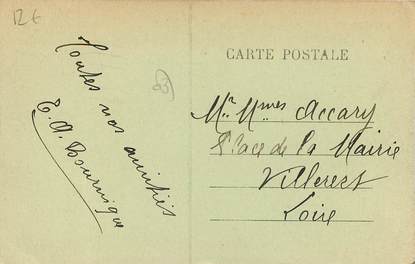 12€
Toutes nos amitiés
E. A. Bournique
83
CARTE POSTALE
Mr Mmes Accary
Place de la Mairie
Villerest
Loire